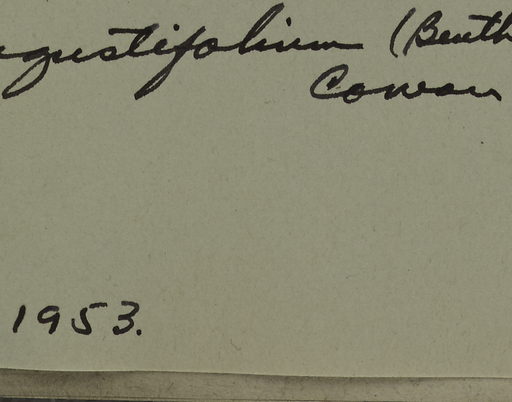 ngustifolium (Benth
Cowan
1953.